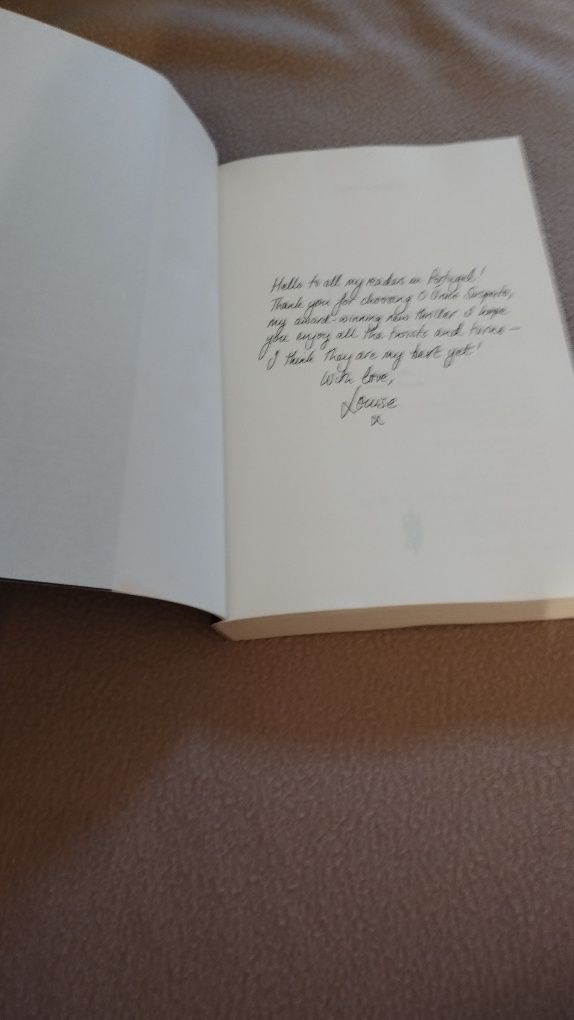 Hello to all my readers in Portugal!
Thank you for choosing O Único Suspeito,
my award-winning new thriller. I hope
you enjoy all the twists and turns —
I think they are my best yet!
With love,
Louise
x